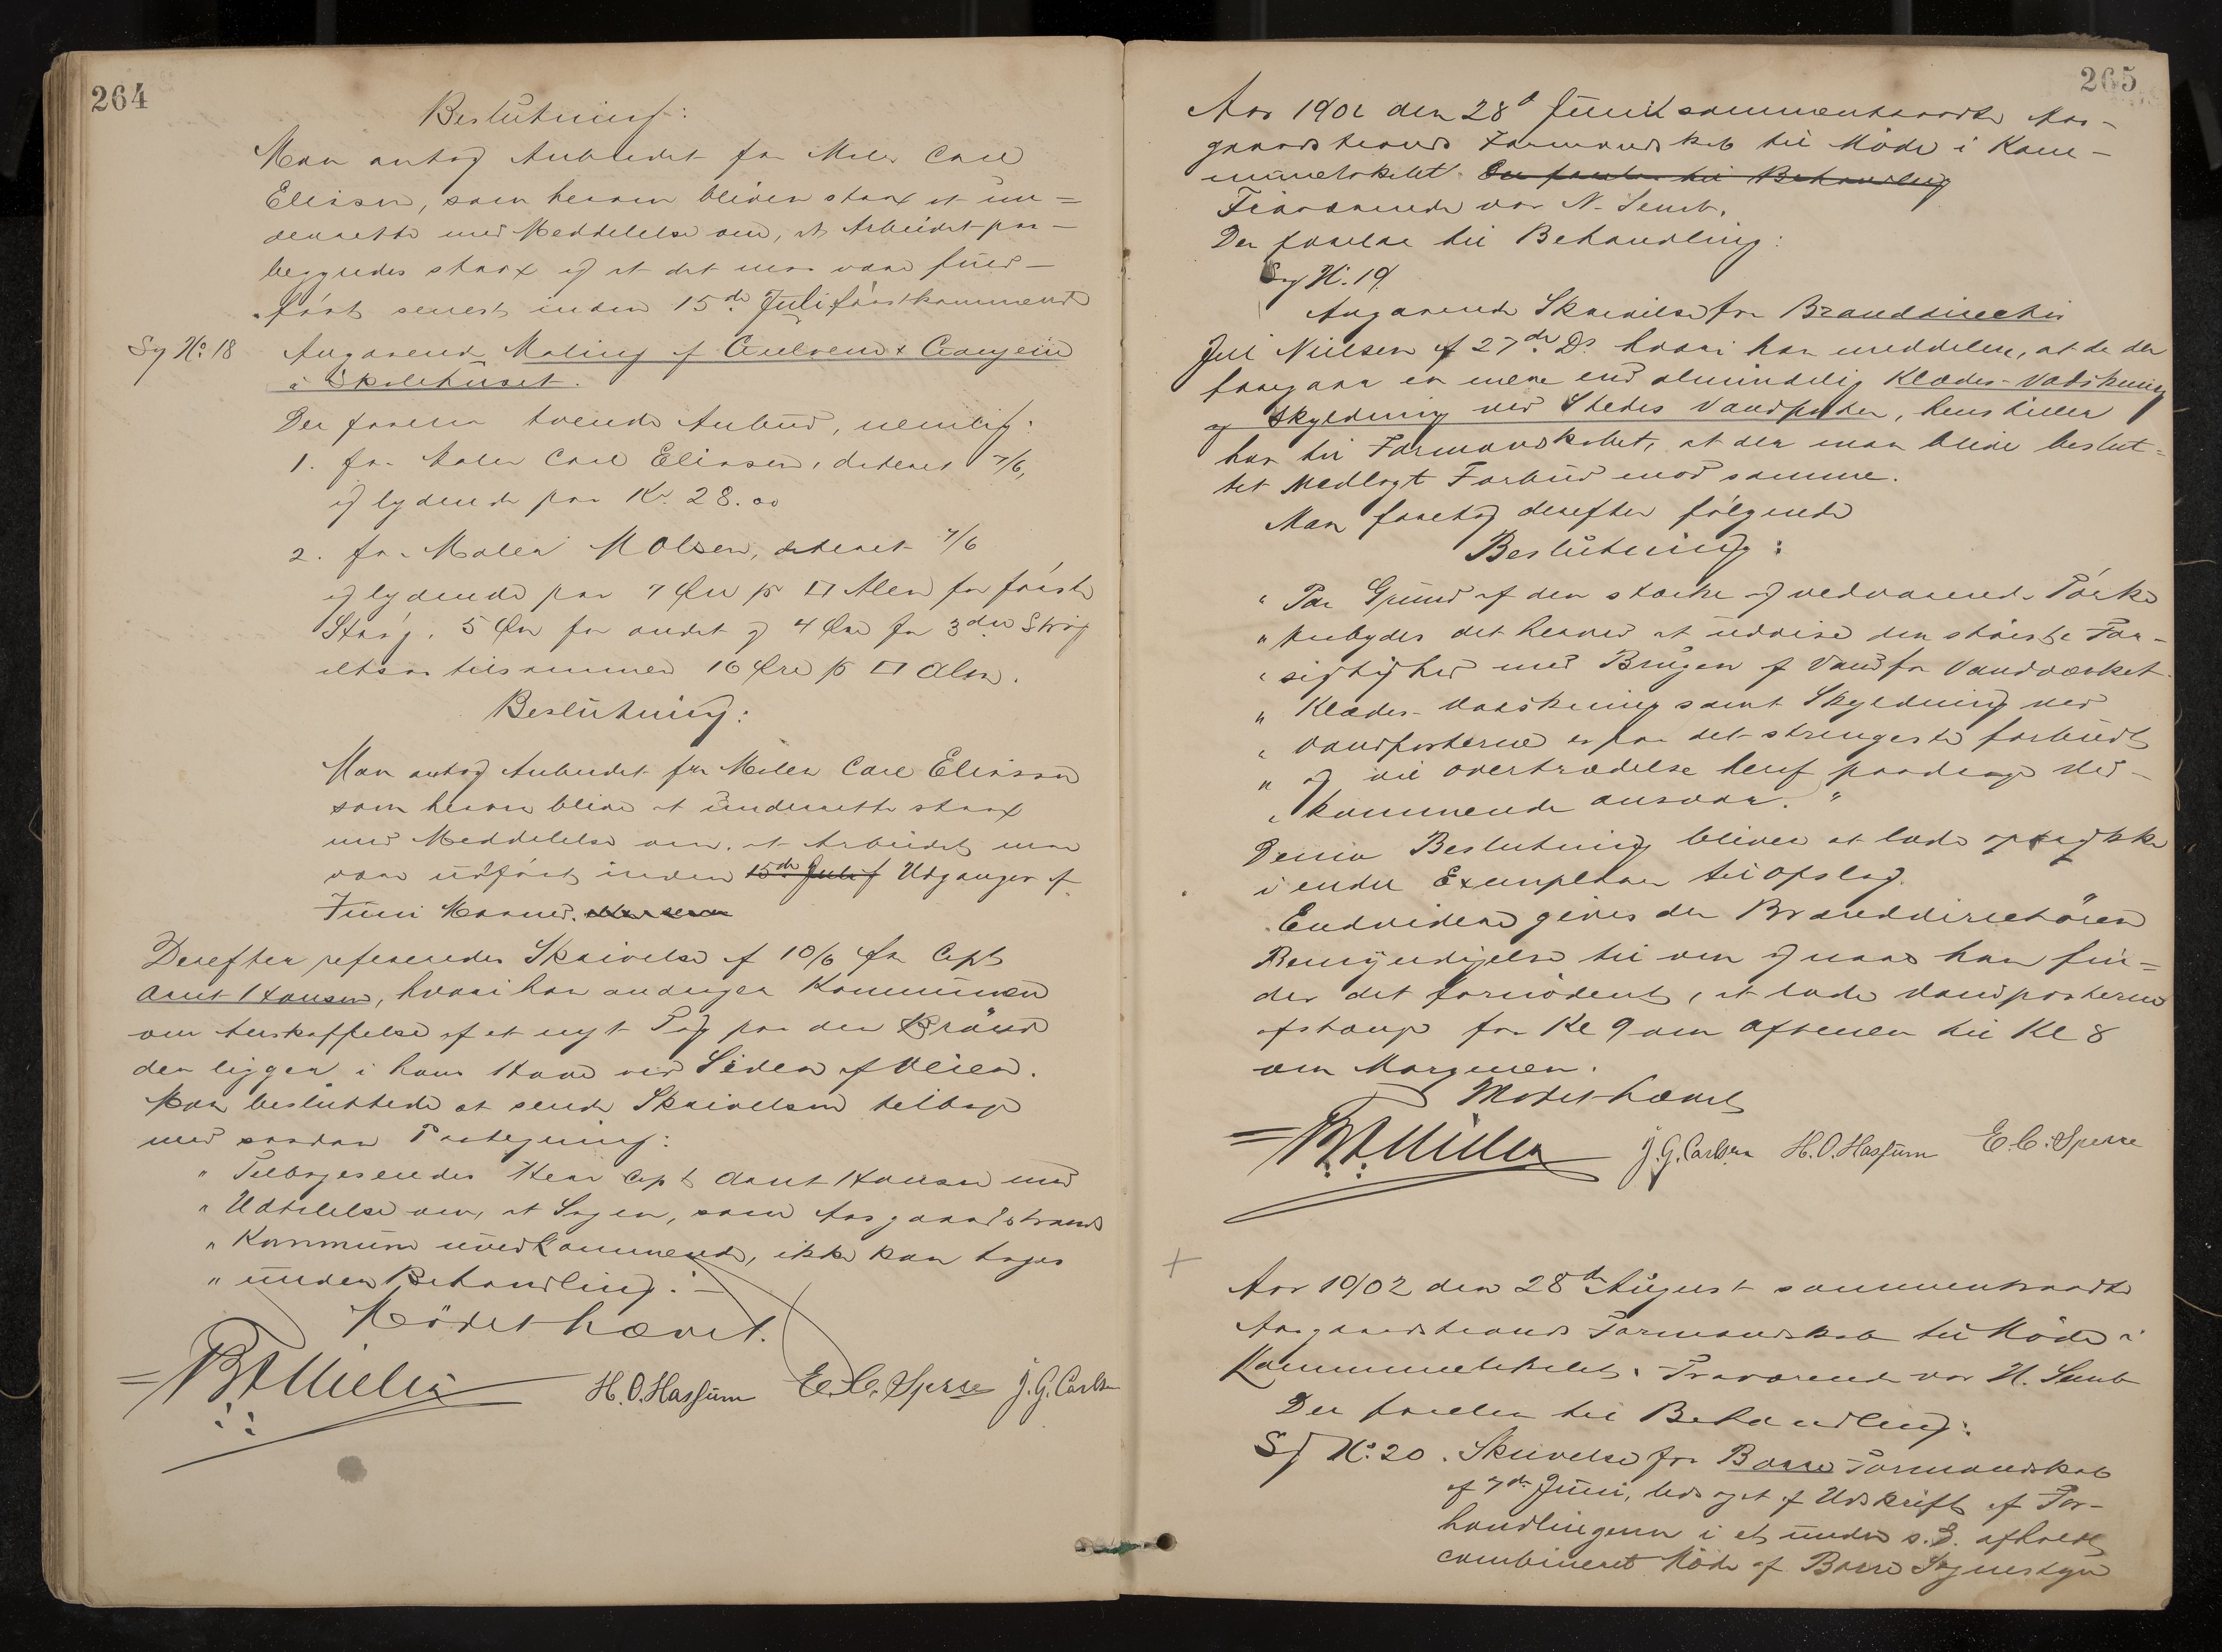 264
Beslutning:
Man antog Anbudet fra Maler Carl
Eliasen, som herom bliver strax at un=
derrette med Meddelelse om, at Arbeidet paa-
begyndes strax og at det maa være fuld-
ført senest inden 15de Juli førstkommende
Sag No. 18 Angaaende Maling af Gulvene & Gangene
i Skolehuset.
Der forelaa tvende Anbud, nemlig:
1. fra Maler Carl Eliasen, dateret 7/6,
og lydende paa Kr. 28.00
2. fra Maler M Olsen, dateret 7/6
og lydende paa 7 Øre pr □ Alen for første
Strøg, 5 Øre for andet og 4 Øre for 3die Strøg
altsaa tilsammen 16 Øre pr □ Alen.
Beslutning:
Man antog Anbudet fra Maler Carl Eliasen
som herom bliver at underrette strax
med Meddelelse om, at Arbeidet maa
være udført inden 15de Juli Udgangen af
Juni Maaned.
Derefter refereredes Skrivelse af 10/6 fra Capt
Arnt Hansen, hvori han andrager Kommunen
om Anskaffelse af et nyt Tag paa den Brønd
der ligger i hans Have ved Siden af Veien.
Man besluttede at sende Skrivelsen tilbage
med saadan Paategning:
" Tilbagesendes Herr Capt Arnt Hansen med
" Udtalelse om, at Sagen, som Aasgaardstrands
" Kommune uvedkommende, ikke kan tages
" under Behandling. -
Mödet hævet.
H. O. Hassum E. C. Sperre J. G. Carlsen
265
Aar 1902 den 28d Juni sammentraadte Aas-
gaardstrands Formandskab til Möde i Kom-
munelokalet. Der forelaa til Behandling
Fraværende var N. Semb.
Der forelaa til Behandling:
Sag No. 19.
Angaaende Skrivelse fra Branddirectør
Jul Nielsen af 27de Ds. hvori han meddeler, at da der
foregaar en mere end almindelig Klædes-Vadskning
og Skyldning ved Stedes Vandposter, henstiller
han til Formandskabet, at der maa blive beslut-
tet Nedlagt Forbud mod samme.
Man foretog derefter følgende
Beslutning:
" Paa Grund af den stærke og vedvarende Tørke
" paabydes det herved at udvise den største For-
" sigtighed med Brugen af Vand fra Vandværket.
" Klædes-Vadskning samt Skyldning ved
" Vandposterne er paa det strengeste forbudt
" og vil overtrædelse heraf paadrage Ved-
" kommende ansvar. "
Denne Beslutning bliver at lade optrykke
i endel Exemplarer til Opslag.
Endvidere gives der Branddirectøren
Bemyndigelse til om og naar han fin=
der det fornødent, at lade Vandposterne
afstænge fra Kl 9 om Aftenen til Kl 8
om Morgenen.
Mödet hævet
J. G. Carlsen H. O. Hassum E. C. Sperre
Aar 1902 den 28de August sammentraadte
Aasgaardstrands Formandskab til Möde i
Kommunelokalet. Fraværende var N. Semb
Der forelaa til Behandling:
Sag No. 20. Skrivelse fra Borre Formandskab
af 7de Juni, ledsaget af Udskrift af For-
handlingerne i et under s. D. afholdt
combineret Möde af Borre Sognestyre